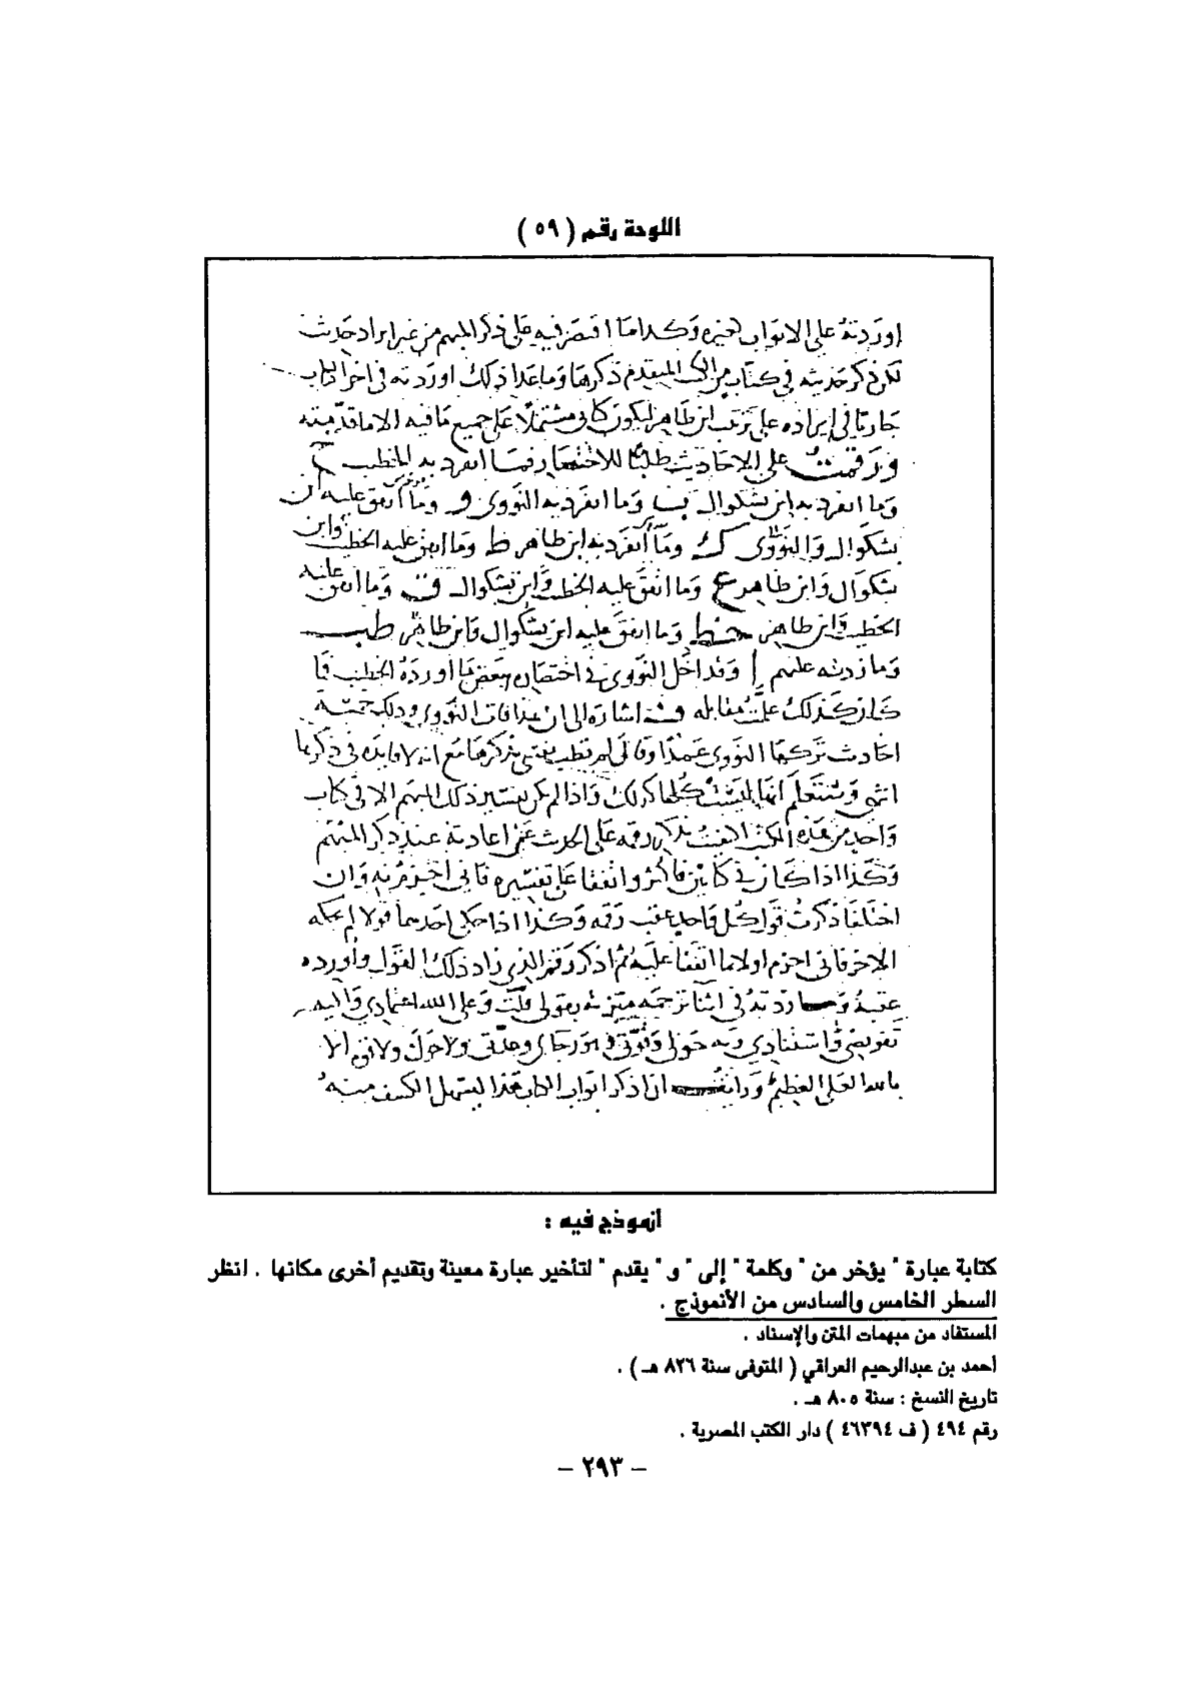 اللوحة رقم ( ٥٩ )
اوردته على الابواب لخيره وكذا ما اقتصر فيه على ذكر المبهم من غير ايراد حديث
لكن ذكر حديثه في كتاب من الكتب المتقدم ذكرها وما عدا ذلك اوردته في اخر الباب
جاريا في ايراده على ترتيب ابن طاهر ليكون كتابي مشتملا على جميع ما فيه الا ما قدمته
ورقمت على الاحاديث طلبا للاختصار فما انفرد به الخطيب خ
وما انفرد به ابن بشكوال ب وما انفرد به النووي و وما اتفق عليه ابن
بشكوال والنووي ك وما انفرد به ابن طاهر ط وما اتفق عليه الخطيب وابن
بشكوال وابن طاهر ع وما اتفق عليه الخطيب وابن بشكوال ق وما اتفق عليه
الخطيب وابن طاهر خط وما اتفق عليه ابن بشكوال وابن طاهر طب
وما زدته عليهم ا وقد اخل النووي في اختصاره ببعض ما اورده الخطيب فما
كان كذلك علمت مقابله اشارة الى ان هذا فات النووي وذلك خمسة
احاديث تركها النووي عمدا وقال لم نظر يعتني بذكرها مع انه لا فايدة في ذكرها
انتهى وستعلم انها ليست كلها كذلك واذا لم يكن تفسير ذلك المبهم الا في كتاب
واحد من هذه الكتب اكتفيت بذكر رقمه على الحديث عن اعادته عند ذكر المبهم
وكذا اذا كان في كتابين فاكثر واتفقا على تفسيره فاني اجزم به وان
اختلفا ذكرت قول كل واحد عقب رقمه وكذا اذا حكى احدهما قولا لم يحكه
الاخر فاني اجزم اولا بما اتفقا عليه ثم اذكر رقم الذي زاد ذلك القول واورده
عقبه وما زدته في اثنا ترجمه ميزته بقولي قلت وعلى الله اعتمادي واليه
تفويضي واستنادي وبه حولي وقوتي هو رجاي وعدتي ولا حول ولا قوة الا
بالله العلي العظيم ورايت ان اذكر ابواب الكتاب هذا ليسهل الكشف منه
أنموذج فيه :
كتابة عبارة " يؤخر من " وكلمة " إلى " و " يقدم " لتأخير عبارة معينة وتقديم أخرى مكانها . انظر
السطر الخامس والسادس من الأنموذج .
المستفاد من مبهمات المتن والإسناد .
أحمد بن عبدالرحيم العراقي ( المتوفى سنة ٨٢٦ هـ ) .
تاريخ النسخ : سنة ٨٠٥ هـ .
رقم ٤٩٤ ( ف ٤٦٣٩٤ ) دار الكتب المصرية .
– ٢٩٣ –